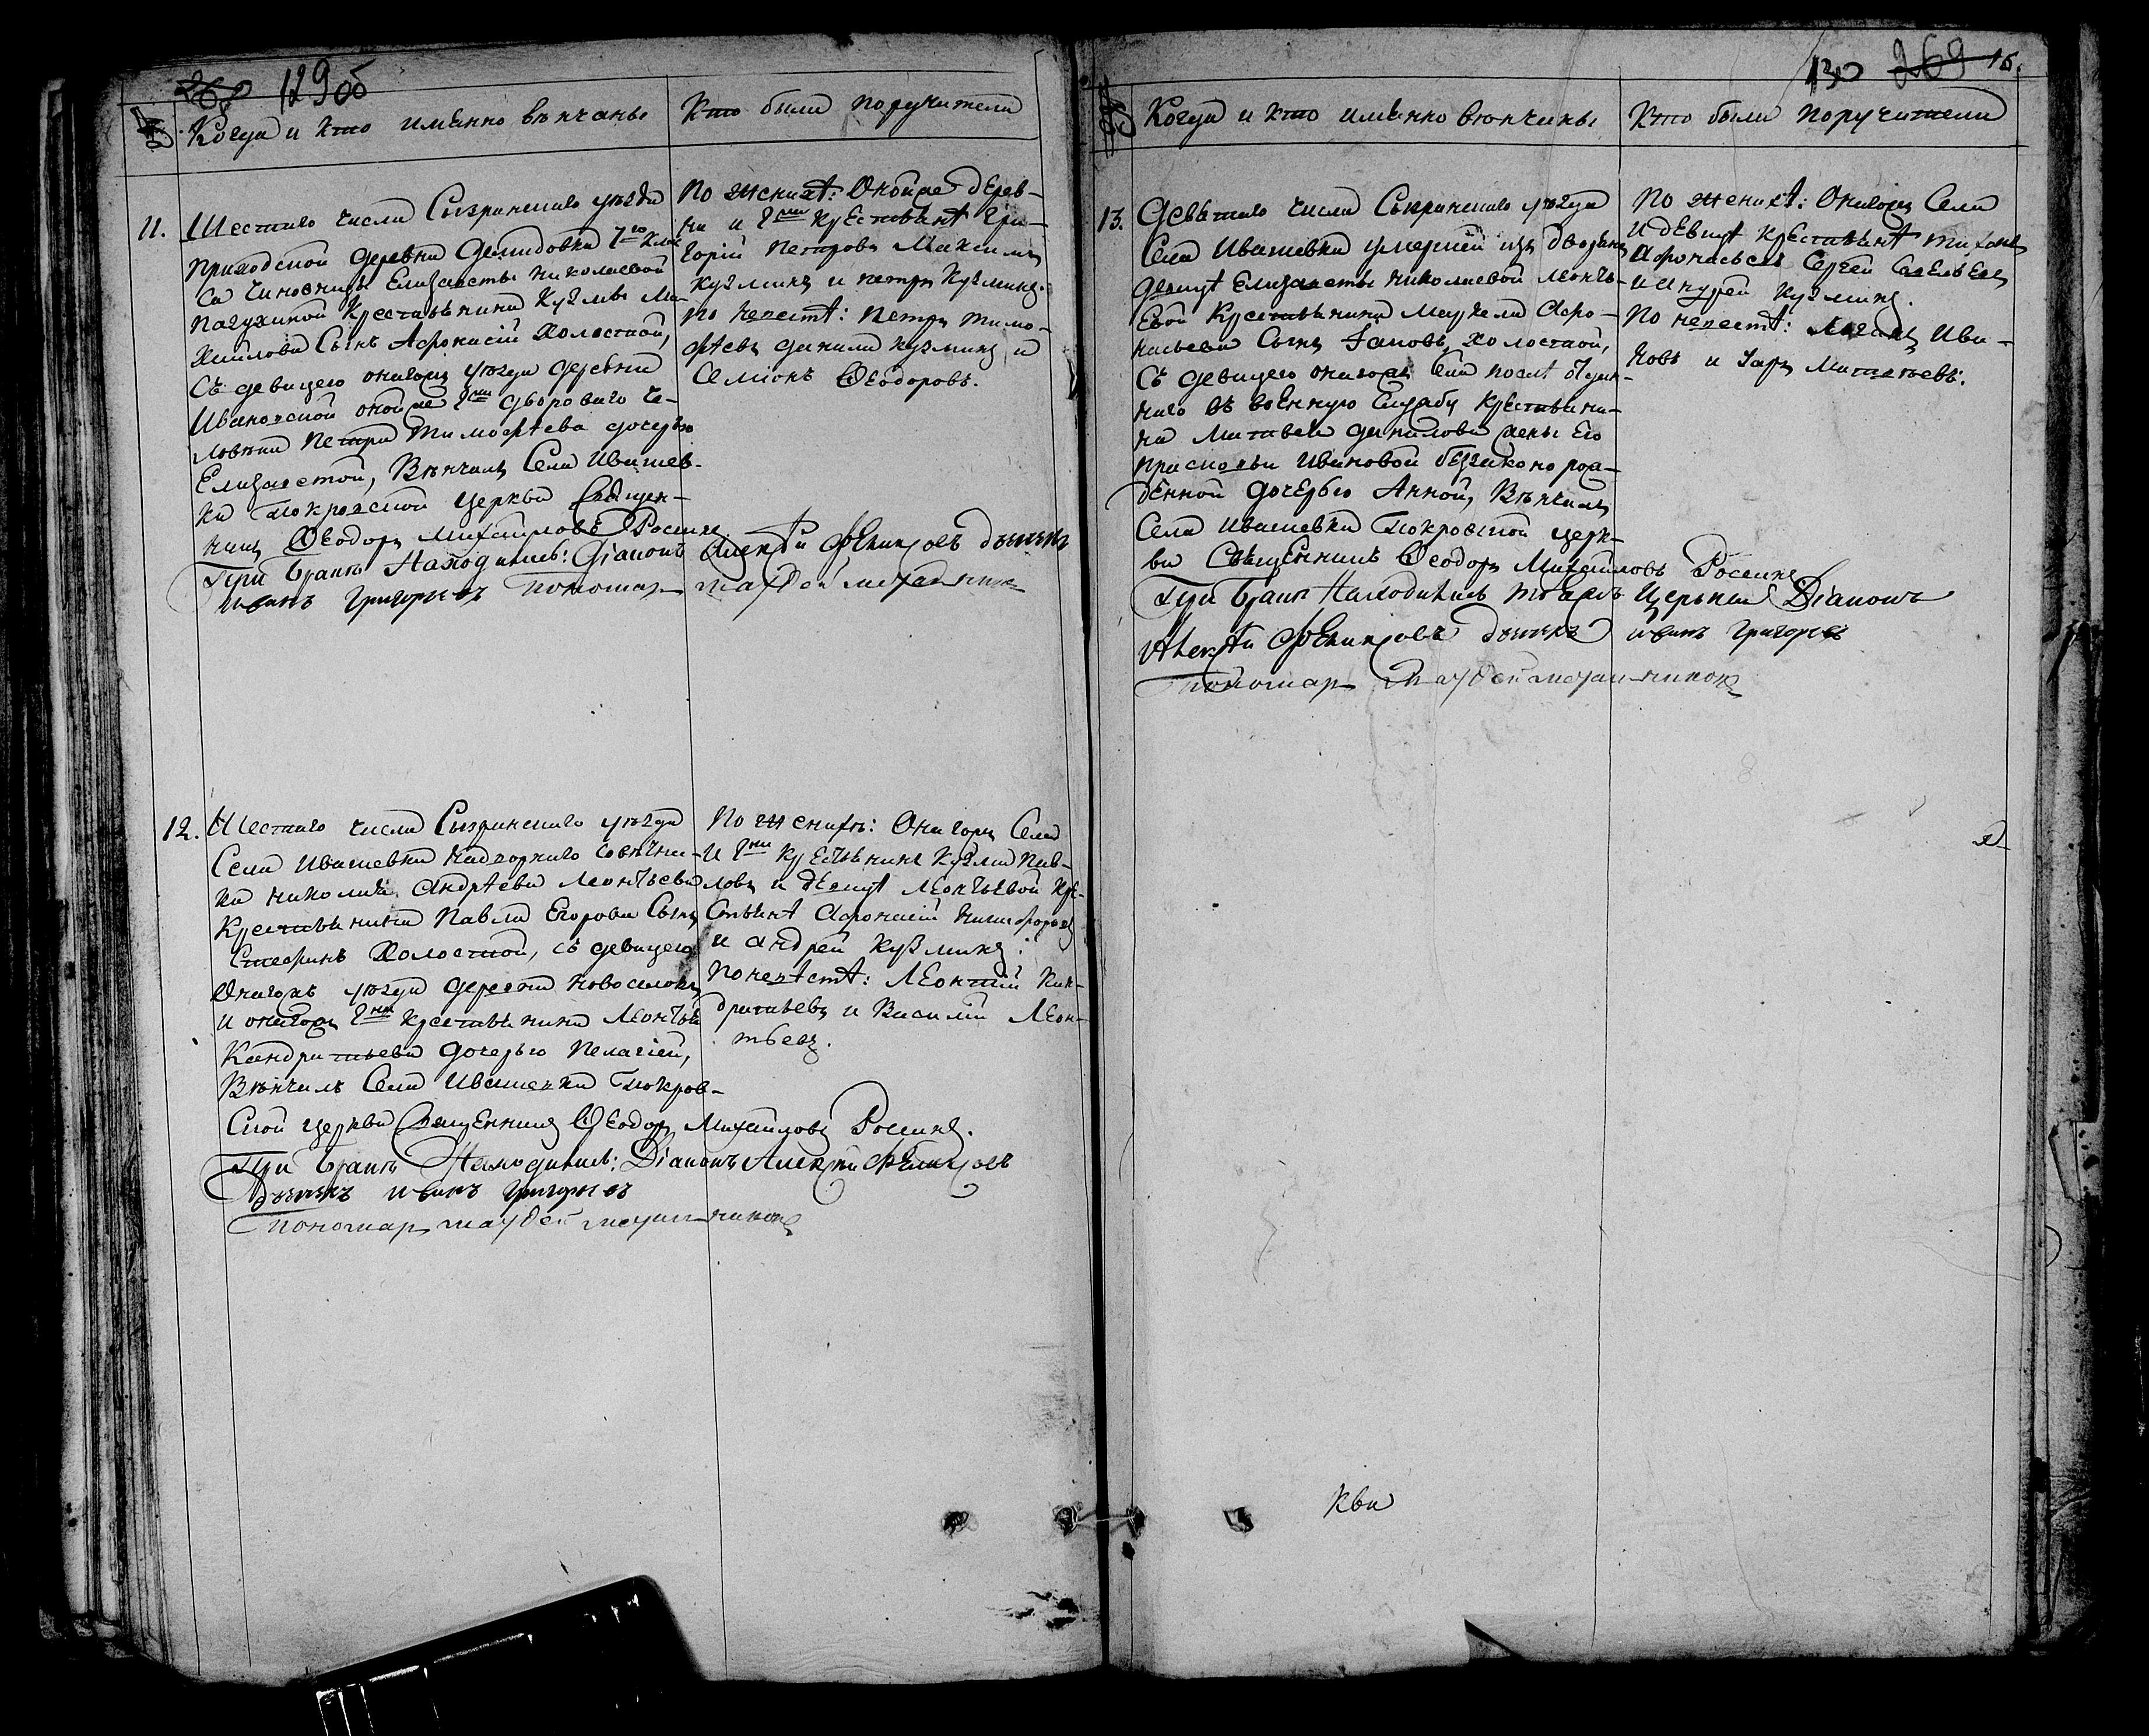 268 129об
№ Когда и кто именно венчаны
Кто были поручители
11. Шестаго числа Сызранскаго уезда
приходской деревни Демидовки 7го клас
са чиновницы Елизаветы Николаевой
крестьянина Кузмы Ми-
хайлова Сынъ Афонасій Холостой,
Съ девицею онагожъ уезда деревни
Ивановской онойже гжи двороваго че-
ловека Петра Тимофеева дочерью
Елизаветой, Венчалъ Села Ивашев-
ки Покровской церкви Священ-
никъ Ѳеодоръ Михайловъ Россинъ
При браке Находились: Діаконъ Алексей дьячекъ
иванъ григорьевъ пономарь
По женихе: Онойже дерев-
ни и гжи крестьяне Гри-
горій Петровъ Максимъ
Кузминъ и петръ Кузминъ.
По невесте: Петръ Тимо-
феевъ данила Кузминъ и
Семіонъ Ѳеодоровъ.
12. Шестаго числа Сызранскаго уезда
Села Ивашевки надворнаго советни-
ка николая Андреева Леонтьева
Крестьянина Павла Егорова Сынъ
Стефанъ Холостой, съ девицею
Онагожъ уезда деревни
и онагожъ гна крестьянина Леонтья
Кандратьева дочерью Пелагіей,
Венчалъ Села Ивашевки Покров-
ской церкви Священникъ Ѳеодоръ Михайловъ Россинъ.
При браке Находились: Діаконъ Алексей
дьячекъ иванъ григорьевъ
пономарь
По женихе: Онагожъ Села
и гна крестьянинъ Кузма Пав-
ловъ и девицы Леонтьевой кре-
стьяне Афонасій Никифоровъ
и андрей Кузминъ.
По невесте: Леонтій Кан-
дратьевъ и Василій Леон-
тьевъ.
130 269 15.
№ Когда и кто именно венчаны
Кто были поручители
13. Деветаго числа Сызранскаго уезда
Села Ивашевки умершей изъ дворянъ
девицы Елизаветы Николаевой Леонть-
евой Крестьянина Михайла Афо-
насьева Сынъ Іаковъ, Холостой,
Съ девицею онагожъ Села после отдан-
наго въ военную Службу крестьяни-
на Матвея данилова жены Его
Ивановой беззаконорож-
денной дочерью Анной, Венчалъ
Села Ивашевки Покровской церк-
ви Священникъ Ѳеодоръ Михайловъ Россинъ
При браке Находились тояжъ Церькви Діаконъ
Алексей дьячекъ иванъ григорьевъ
пономарь
По женихе: Онагожъ Села
и девицы крестьяне
Афонасьевъ Сергей Савельевъ
и Андрей Кузминъ.
По невесте: Ива-
новъ и Матвеевъ.
ква